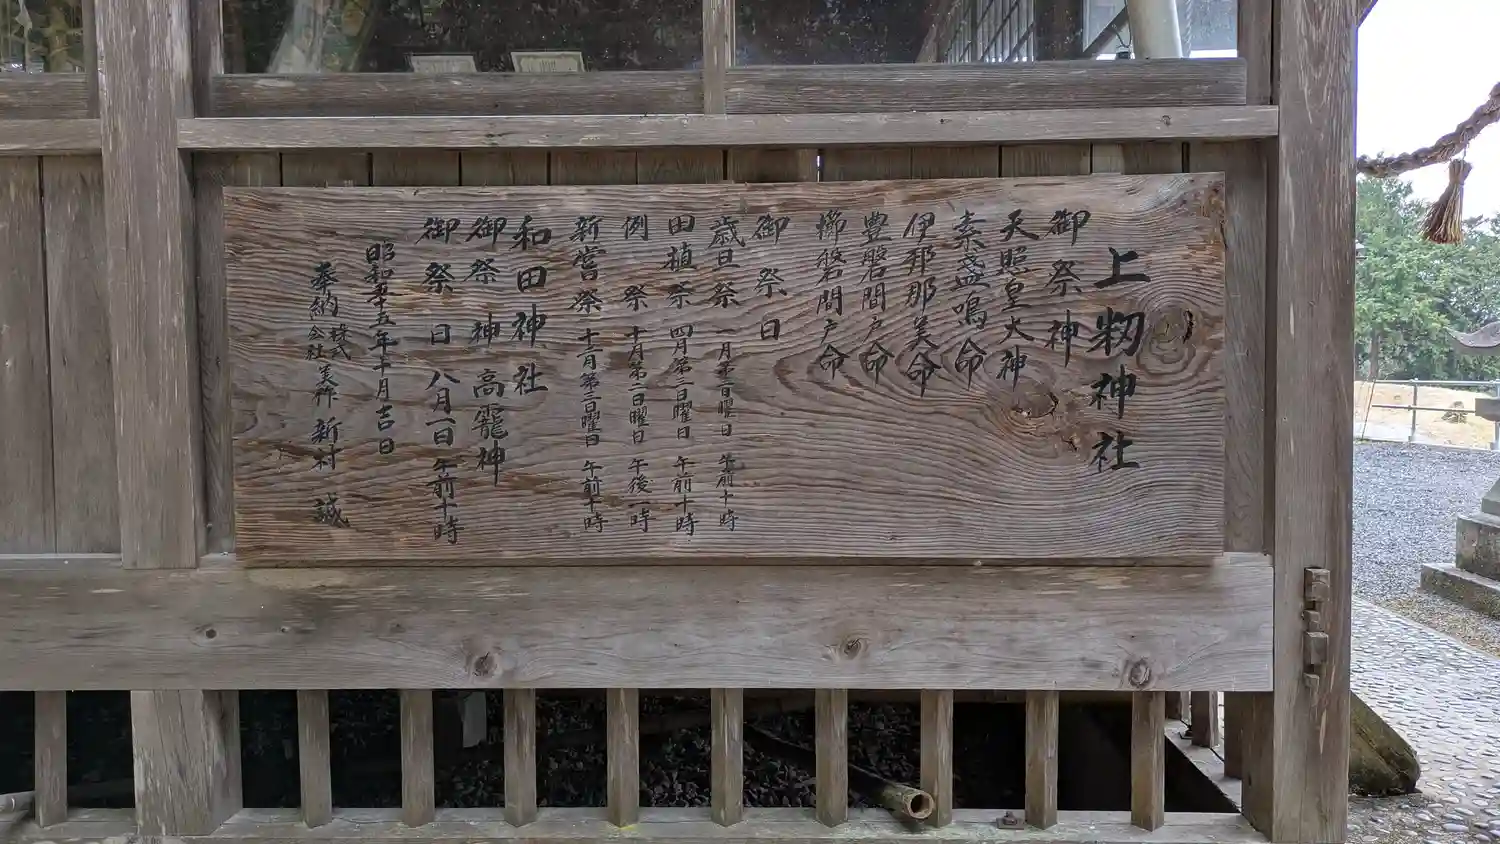 上籾神社
御祭神
天照皇大神
素盞鳴命
伊那那美命
豊磐間戸命
櫛磐間戸命
御祭日
歳旦祭 一月第一日曜日 午前十時
田植祭 四月第三日曜日 午前十時
例祭 十月第二日曜日 午後一時
新嘗祭 十二月第三日曜日 午前十時
和田神社
御祭神 高龗神
御祭日 八月一日 午前十時
昭和五十五年十月吉日
奉納 株式会社 美作 新村 誠